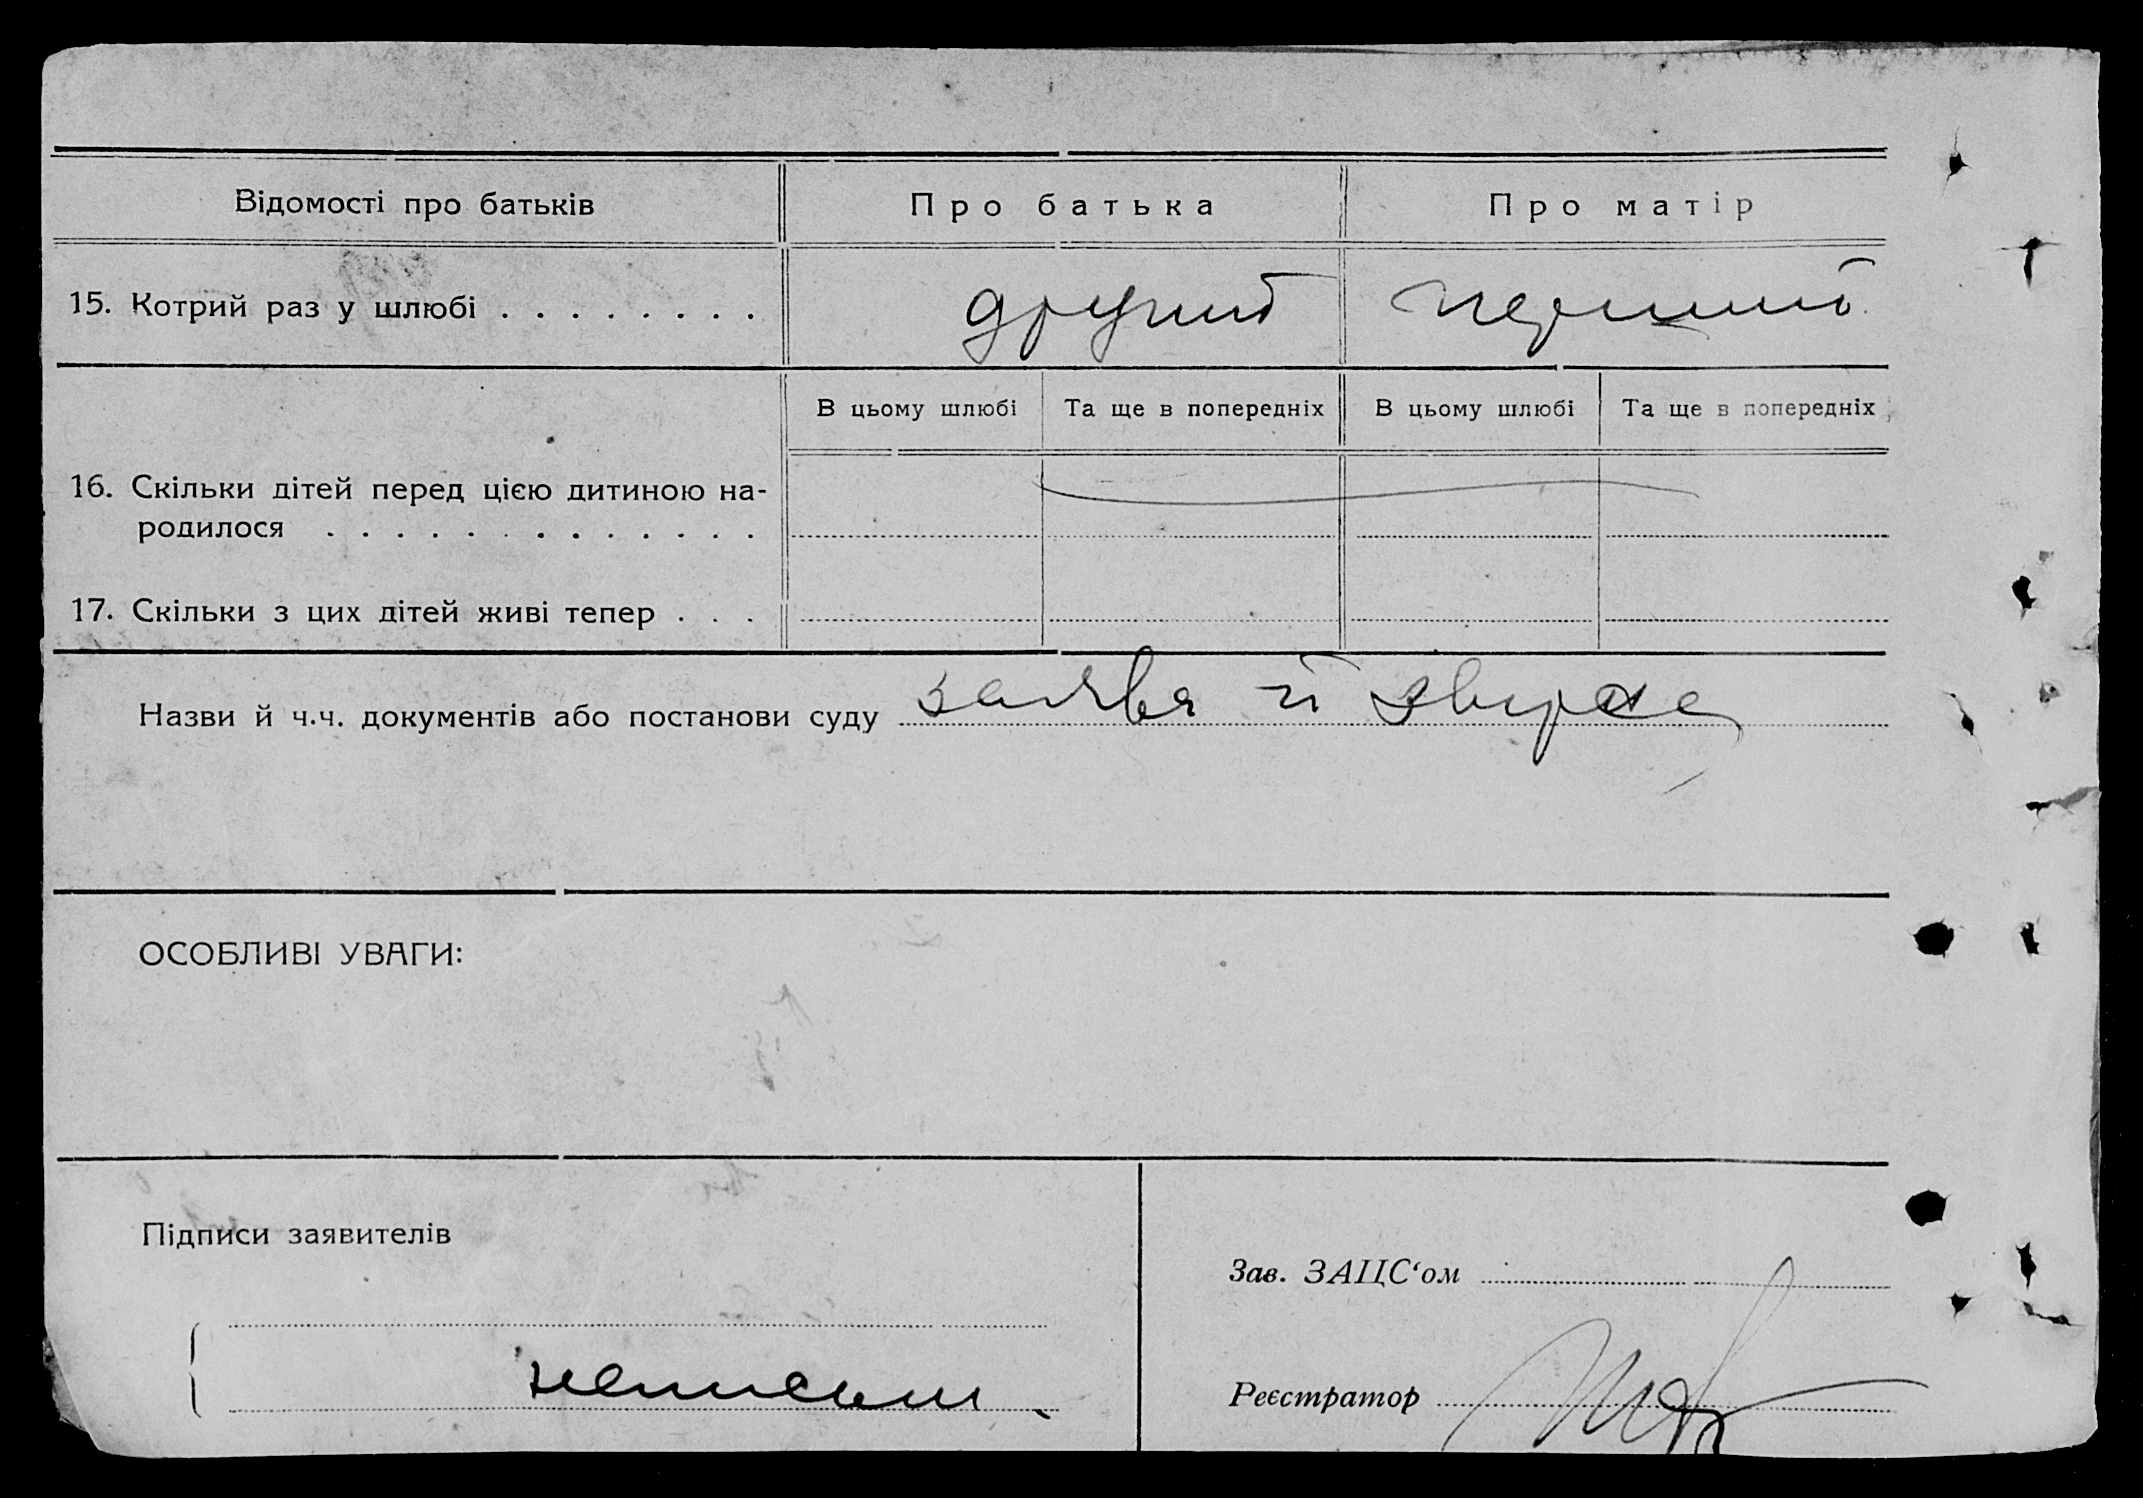 Відомості про батьків Про батька Про матір
15. Котрий раз у шлюбі . . . . . . . . другий перший
В цьому шлюбі Та ще в попередніх В цьому шлюбі Та ще в попередніх
16. Скільки дітей перед цією дитиною на-
родилося . . . . . . . . . . . . .
17. Скільки з цих дітей живі тепер . . .
Назви й ч.ч. документів або постанови суду заява й
ОСОБЛИВІ УВАГИ:
Підписи заявителів
Зав. ЗАЦС‘ом
неписьм
Реєстратор